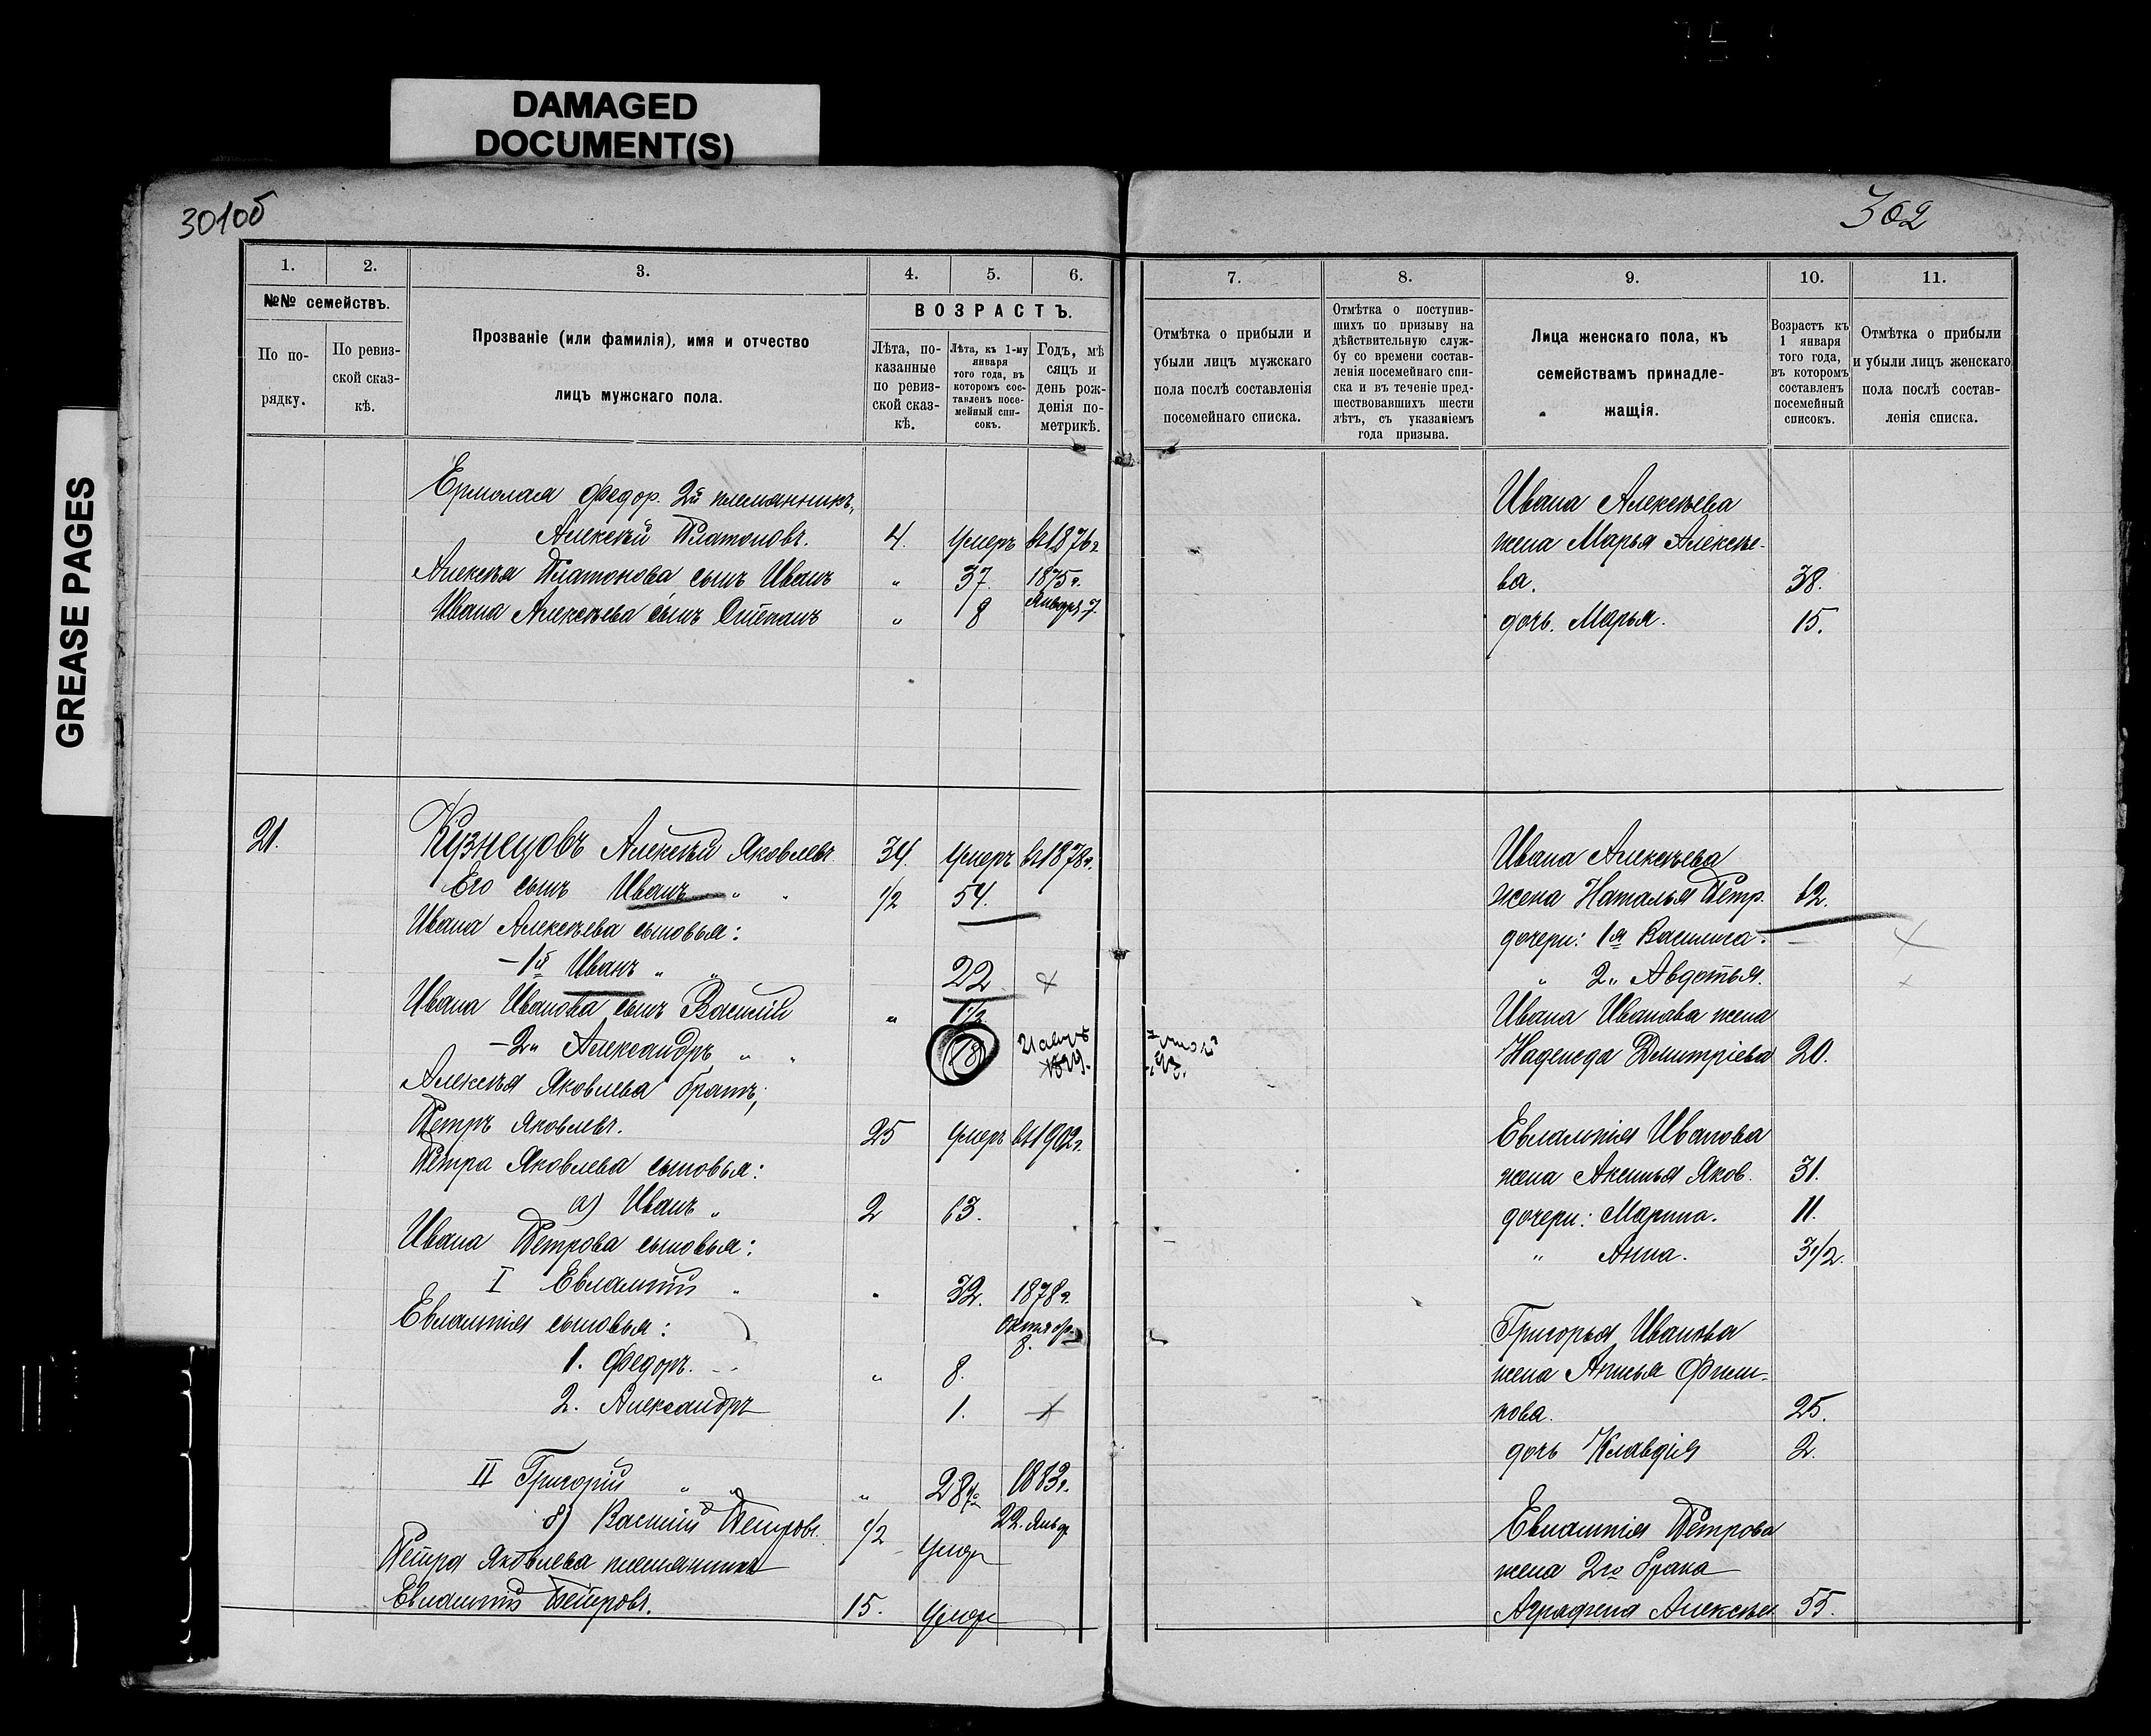 DAMAGED
DOCUMENT(S)
GREASE PAGES
301об
302
1.
2.
3.
4.
5.
6.
№№ семействъ.
По по-
рядку.
По ревиз-
ской сказ-
кѣ.
Прозваніе (или фамилія), имя и отчество
лицъ мужскаго пола.
ВОЗРАСТЪ.
Лѣта, по-
казанные
по ревиз-
ской сказ-
кѣ.
Лѣта, къ 1-му
января
того года, въ
которомъ сос-
тавленъ посе-
мейный спи-
сокъ.
Годъ, мѣ
сяцъ и
день рож-
денія по-
метрикѣ.
Ермолая Федор. 2й племянникъ,
Алексѣй Платоновъ. 4. Умеръ въ 1876 г.
Алексѣя Платонова сынъ Иванъ " 37. 1875 г.
Ивана Алексѣева сынъ Степанъ " 8 Январ. 7.
21. Кузнецовъ Алексѣй Яковлевъ 34. Умеръ въ 1878 г.
Его сынъ Иванъ " " 1/2 54.
Ивана Алексѣева сыновья:
– 1й Иванъ " " 22 ×
Ивана Иванова сынъ Василій " 1/2
– 2" Александръ " " 18
Алексѣя Яковлева братъ,
Петръ Яковлевъ. 25 Умеръ въ 1902 г.
Петра Яковлева сыновья:
а) Иванъ " 2 63.
Ивана Петрова сыновья:
I Евлампій " " 32. 1878 г.
Евлампія сыновья: Октябр.
8.
1. Федоръ. " 8.
2. Александръ 1. ×
II Григорій " " " 28 1883 г.
б) Василій Петровъ. 1/2 Умер 22. Янвр
Петра Яковлева племянникъ
Евлампій Петровъ. 15. Умер
7.
8.
9.
10.
11.
Отмѣтка о прибыли и
убыли лицъ мужскаго
пола послѣ составленія
посемейнаго списка.
Отмѣтка о поступив-
шихъ по призыву на
дѣйствительную служ-
бу со времени состав-
ленія посемейнаго спи-
ска и въ теченіе пред-
шествовавшихъ шести
лѣтъ, съ указаніемъ
года призыва.
Лица женскаго пола, къ
семействамъ принадле-
жащія.
Возрастъ къ
1 января
того года,
въ которомъ
составленъ
посемейный
списокъ.
Отмѣтка о прибыли
и убыли лицъ женскаго
пола послѣ состав-
ленія списка.
Ивана Алексѣева
жена Марья Алексѣе-
ва. 38.
дочь. Марья. 15.
Ивана Алексѣева
жена Наталья Петр. 62.
дочери: 1я Василиса. – ×
" 2" Авдотья. ×
Ивана Иванова жена
Надежда Дмитріева 20.
Евлампія Иванова
жена Аксинья Яков. 31.
дочери: Марина. 11.
" Анна. 3 1/2.
Григорья Иванова
жена Анисья Фили-
пова. 25.
дочь Клавдія 2.
Евлампія Петрова
жена 2го брака
Аграфена Алексѣев 55.